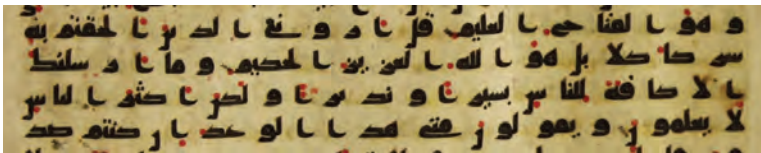 وهو الفتاح العليم قل اروني الذين الحقتم به
شركا كلا بل هو الله العزيز الحكيم وما ارسلنك
الا كافة للناس بشيرا ونذيرا ولكن اكثر الناس
لا يعلمون ويقولون متى هذا الوعد ان كنتم صد